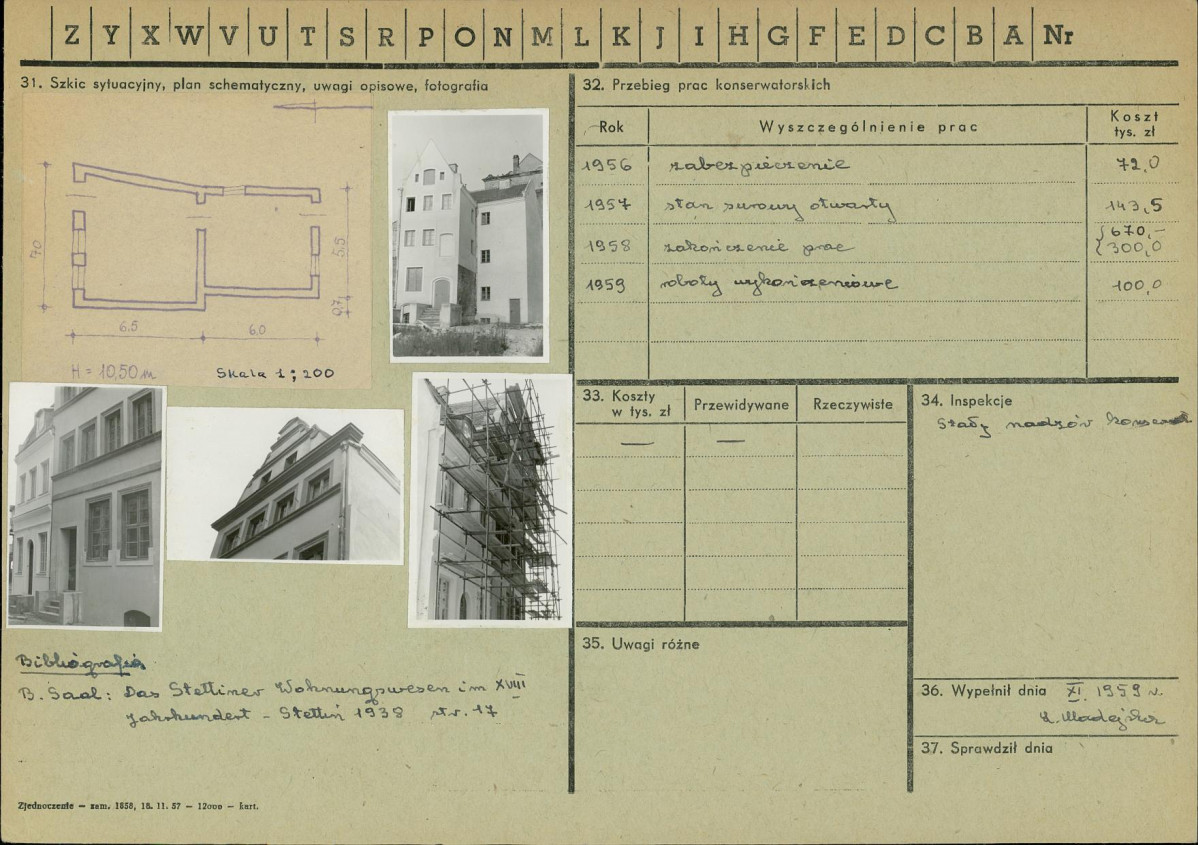 Z Y X W V U T S R P O N M L K J I H G F E D C B A Nr
31. Szkic sytuacyjny, plan schematyczny, uwagi opisowe, fotografia
7.0
5.5
0,7
6.5
6.0
H = 10,50 m
Skala 1 : 200
Bibliografia
B. Saal: Das Stettiner Wohnungswesen im XVIII
Jahrhundert - Stettin 1938 str. 17
Zjednoczenie — zam. 1858, 18. 11. 57 — 12000 — kart.
32. Przebieg prac konserwatorskich
Rok Wyszczególnienie prac Koszt tys. zł
1956 zabezpieczenie 72,0
1957 stan surowy otwarty 143,5
1958 zakończenie prac {670,- {300,0
1959 roboty wykończeniowe 100,0
33. Koszty w tys. zł Przewidywane Rzeczywiste
— —
34. Inspekcje
Stały nadzór
35. Uwagi różne
36. Wypełnił dnia XI. 1959 r.
37. Sprawdził dnia